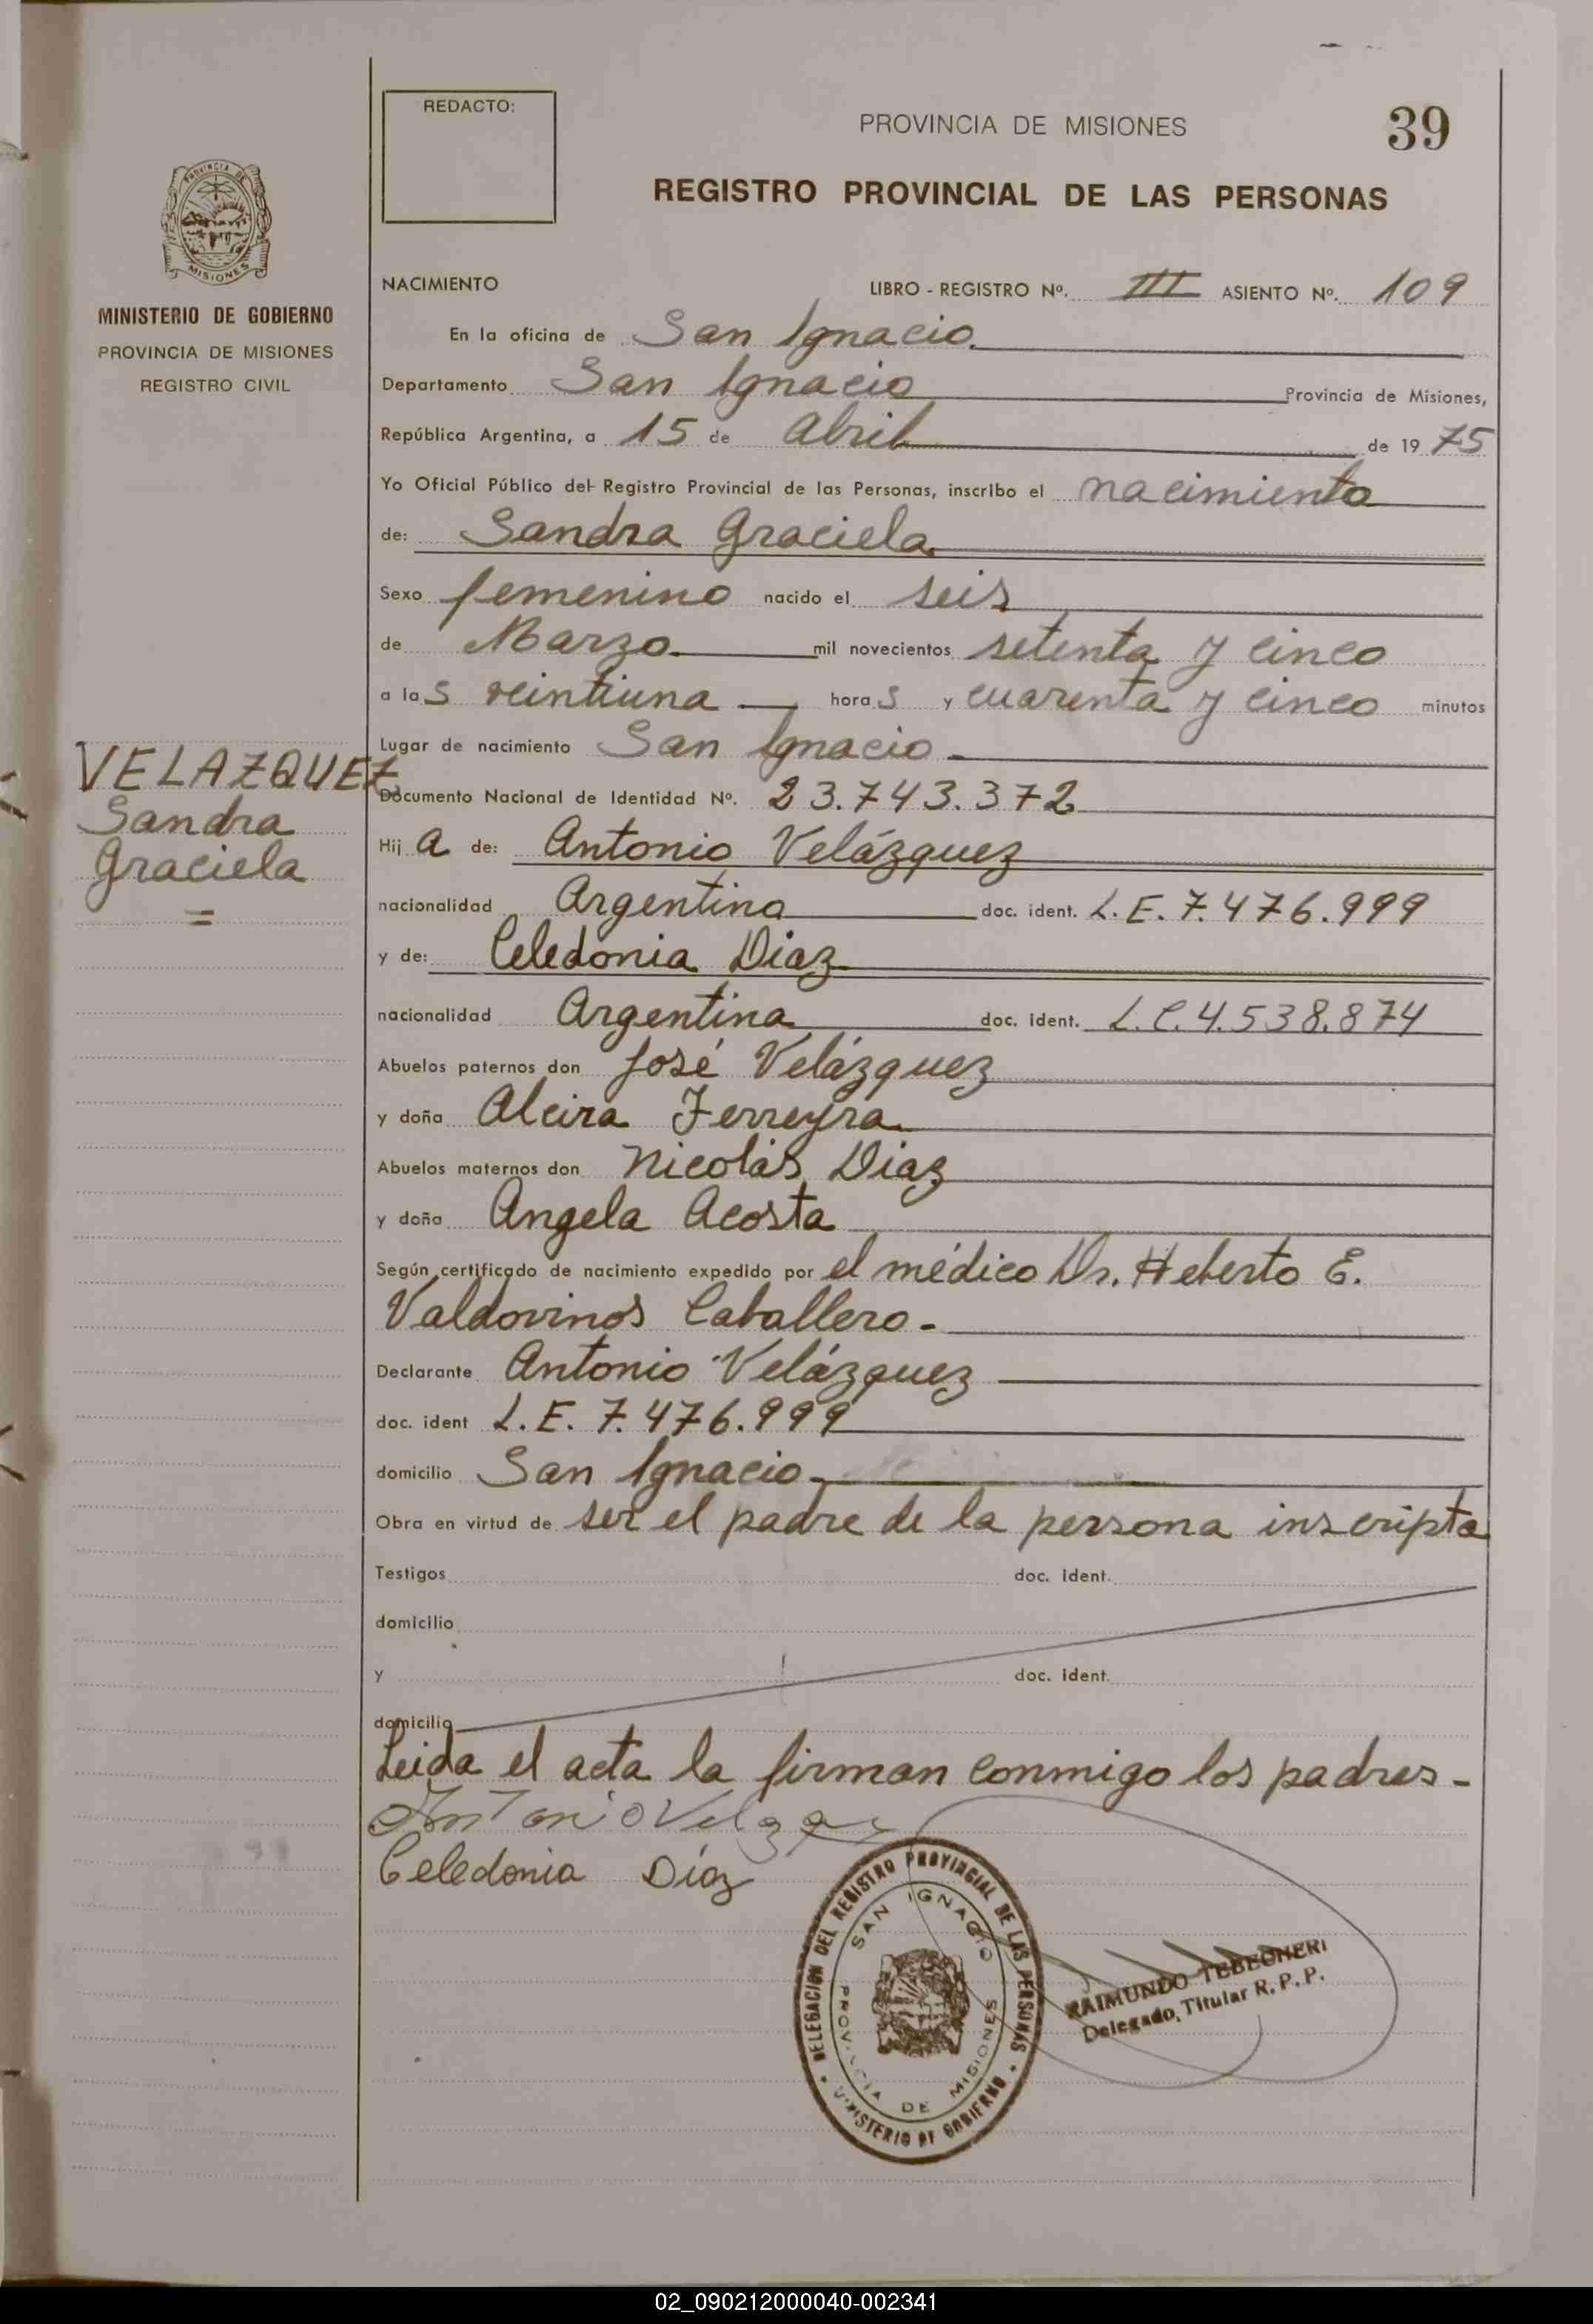 REDACTO:
PROVINCIA DE MISIONES
39
REGISTRO PROVINCIAL DE LAS PERSONAS
PROVINCIA DE
MISIONES
MINISTERIO DE GOBIERNO
PROVINCIA DE MISIONES
REGISTRO CIVIL
NACIMIENTO LIBRO - REGISTRO Nº. III ASIENTO Nº. 109
En la oficina de San Ignacio.
Departamento San Ignacio Provincia de Misiones,
República Argentina, a 15 de Abril de 1975
Yo Oficial Público del Registro Provincial de las Personas, inscribo el nacimiento
de: Sandra Graciela
Sexo femenino nacido el seis
de Marzo mil novecientos setenta y cinco
a las veintiuna horas y cuarenta y cinco minutos
Lugar de nacimiento San Ignacio
VELAZQUEZ
Sandra
Graciela
=
Documento Nacional de Identidad Nº. 23.743.372
Hija de: Antonio Velázquez
nacionalidad Argentina doc. ident. L.E. 7.476.999
y de: Celedonia Diaz
nacionalidad Argentina doc. ident. L.C. 4.538.874
Abuelos paternos don José Velázquez
y doña Alcira Ferreyra
Abuelos maternos don Nicolás Diaz
y doña Angela Acosta
Según certificado de nacimiento expedido por el médico Dr. Heberto E.
Valdovinos Caballero.-
Declarante Antonio Velázquez
doc. ident L.E. 7.476.999
domicilio San Ignacio
Obra en virtud de ser el padre de la persona inscripta
Testigos doc. ident.
domicilio
y doc. ident.
domicilio
Leida el acta la firman conmigo los padres -
Antonio
Celedonia Díaz
DELEGACION DEL REGISTRO PROVINCIAL DE LAS PERSONAS
SAN IGNACIO
PROVINCIA DE MISIONES
MINISTERIO DE GOBIERNO
RAIMUNDO TEBECHERI
Delegado, Titular R. P. P.
02_090212000040-002341